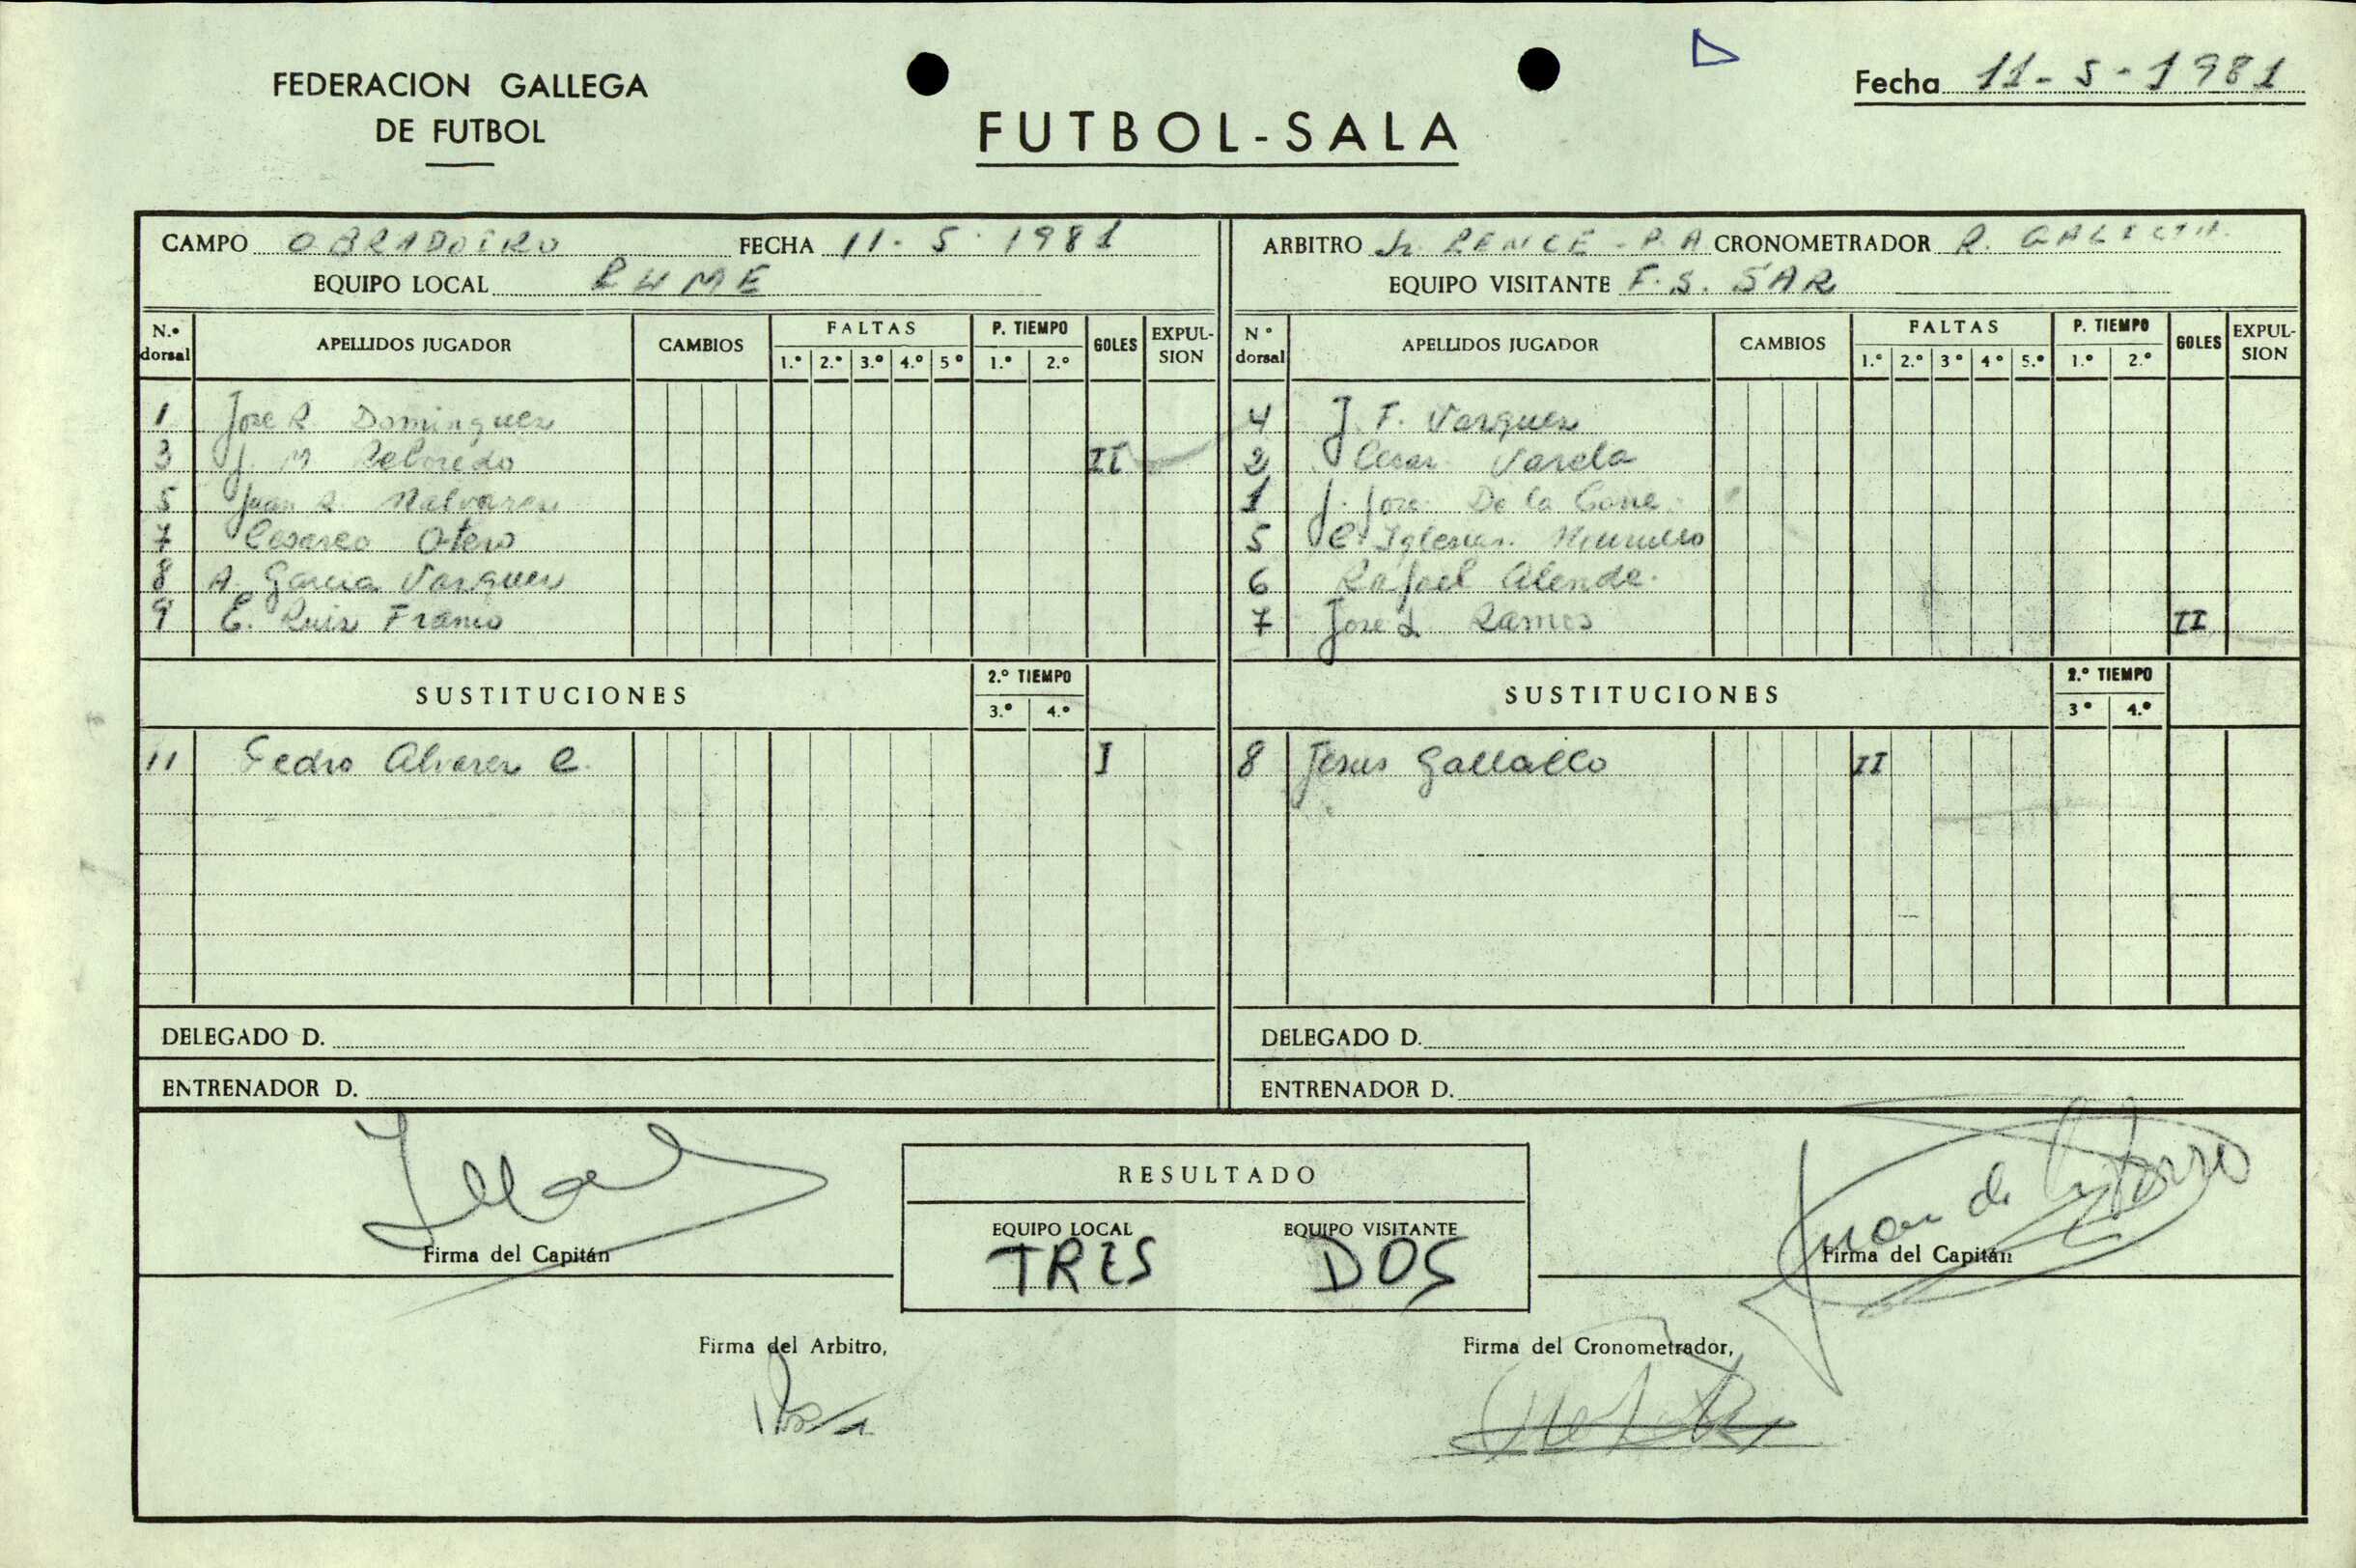 FEDERACION GALLEGA
DE FUTBOL
FUTBOL-SALA
Fecha 11-5-1981
CAMPO OBRADOIRO FECHA 11-5-1981
EQUIPO LOCAL RUME
N.º dorsal APELLIDOS JUGADOR CAMBIOS FALTAS 1.º 2.º 3.º 4.º 5º P. TIEMPO 1.º 2.º GOLES EXPULSION
1 Jose R. Dominguez
3 J. M. Reboredo II
5 Juan R. Malvarez
7 Cesareo Otero
8 A. Garcia Vazquez
9 E. Ruiz Franco
SUSTITUCIONES 2.º TIEMPO 3.º 4.º
11 Pedro Alvarez C. I
DELEGADO D.
ENTRENADOR D.
ARBITRO Sr. PENCE - P.A CRONOMETRADOR R.
EQUIPO VISITANTE F.S. SAR
Nº dorsal APELLIDOS JUGADOR CAMBIOS FALTAS 1.º 2.º 3º 4º 5.º P. TIEMPO 1.º 2.º GOLES EXPULSION
4 J. F. Vazquez
2 Cesar Varela
1 J. Jose De la Torre
5 C. Iglesias
6 Rafael Alende.
7 Jose L Ramos II
SUSTITUCIONES 2.º TIEMPO 3º 4.º
8 Jesus II
DELEGADO D.
ENTRENADOR D.
RESULTADO
EQUIPO LOCAL EQUIPO VISITANTE
TRES DOS
Firma del Capitán
Juan de la Torre
Firma del Capitán
Firma del Arbitro,
Firma del Cronometrador,